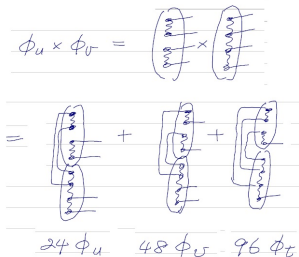 ϕu × ϕv = ×
= + +
24 ϕu 48 ϕv 96 ϕt